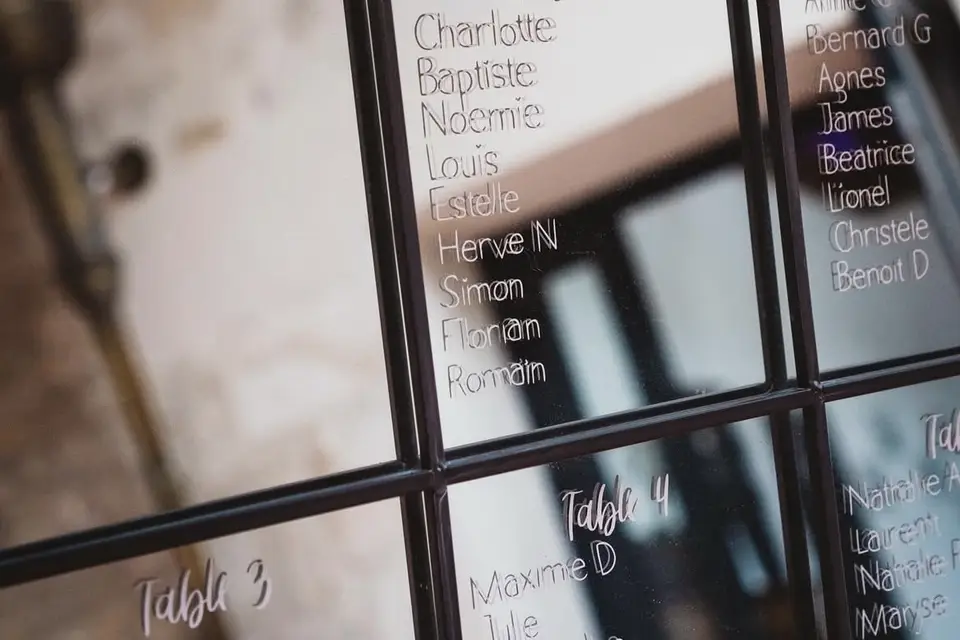 Charlotte
Baptiste
Noemie
Louis
Estelle
Herve N
Simon
Florian
Romain
Bernard G
Agnes
James
Beatrice
Lionel
Christele
Benoit D
Table 3
Table 4
Maxime D
Julie
Nathalie A
Laurent
Nathalie F
Maryse